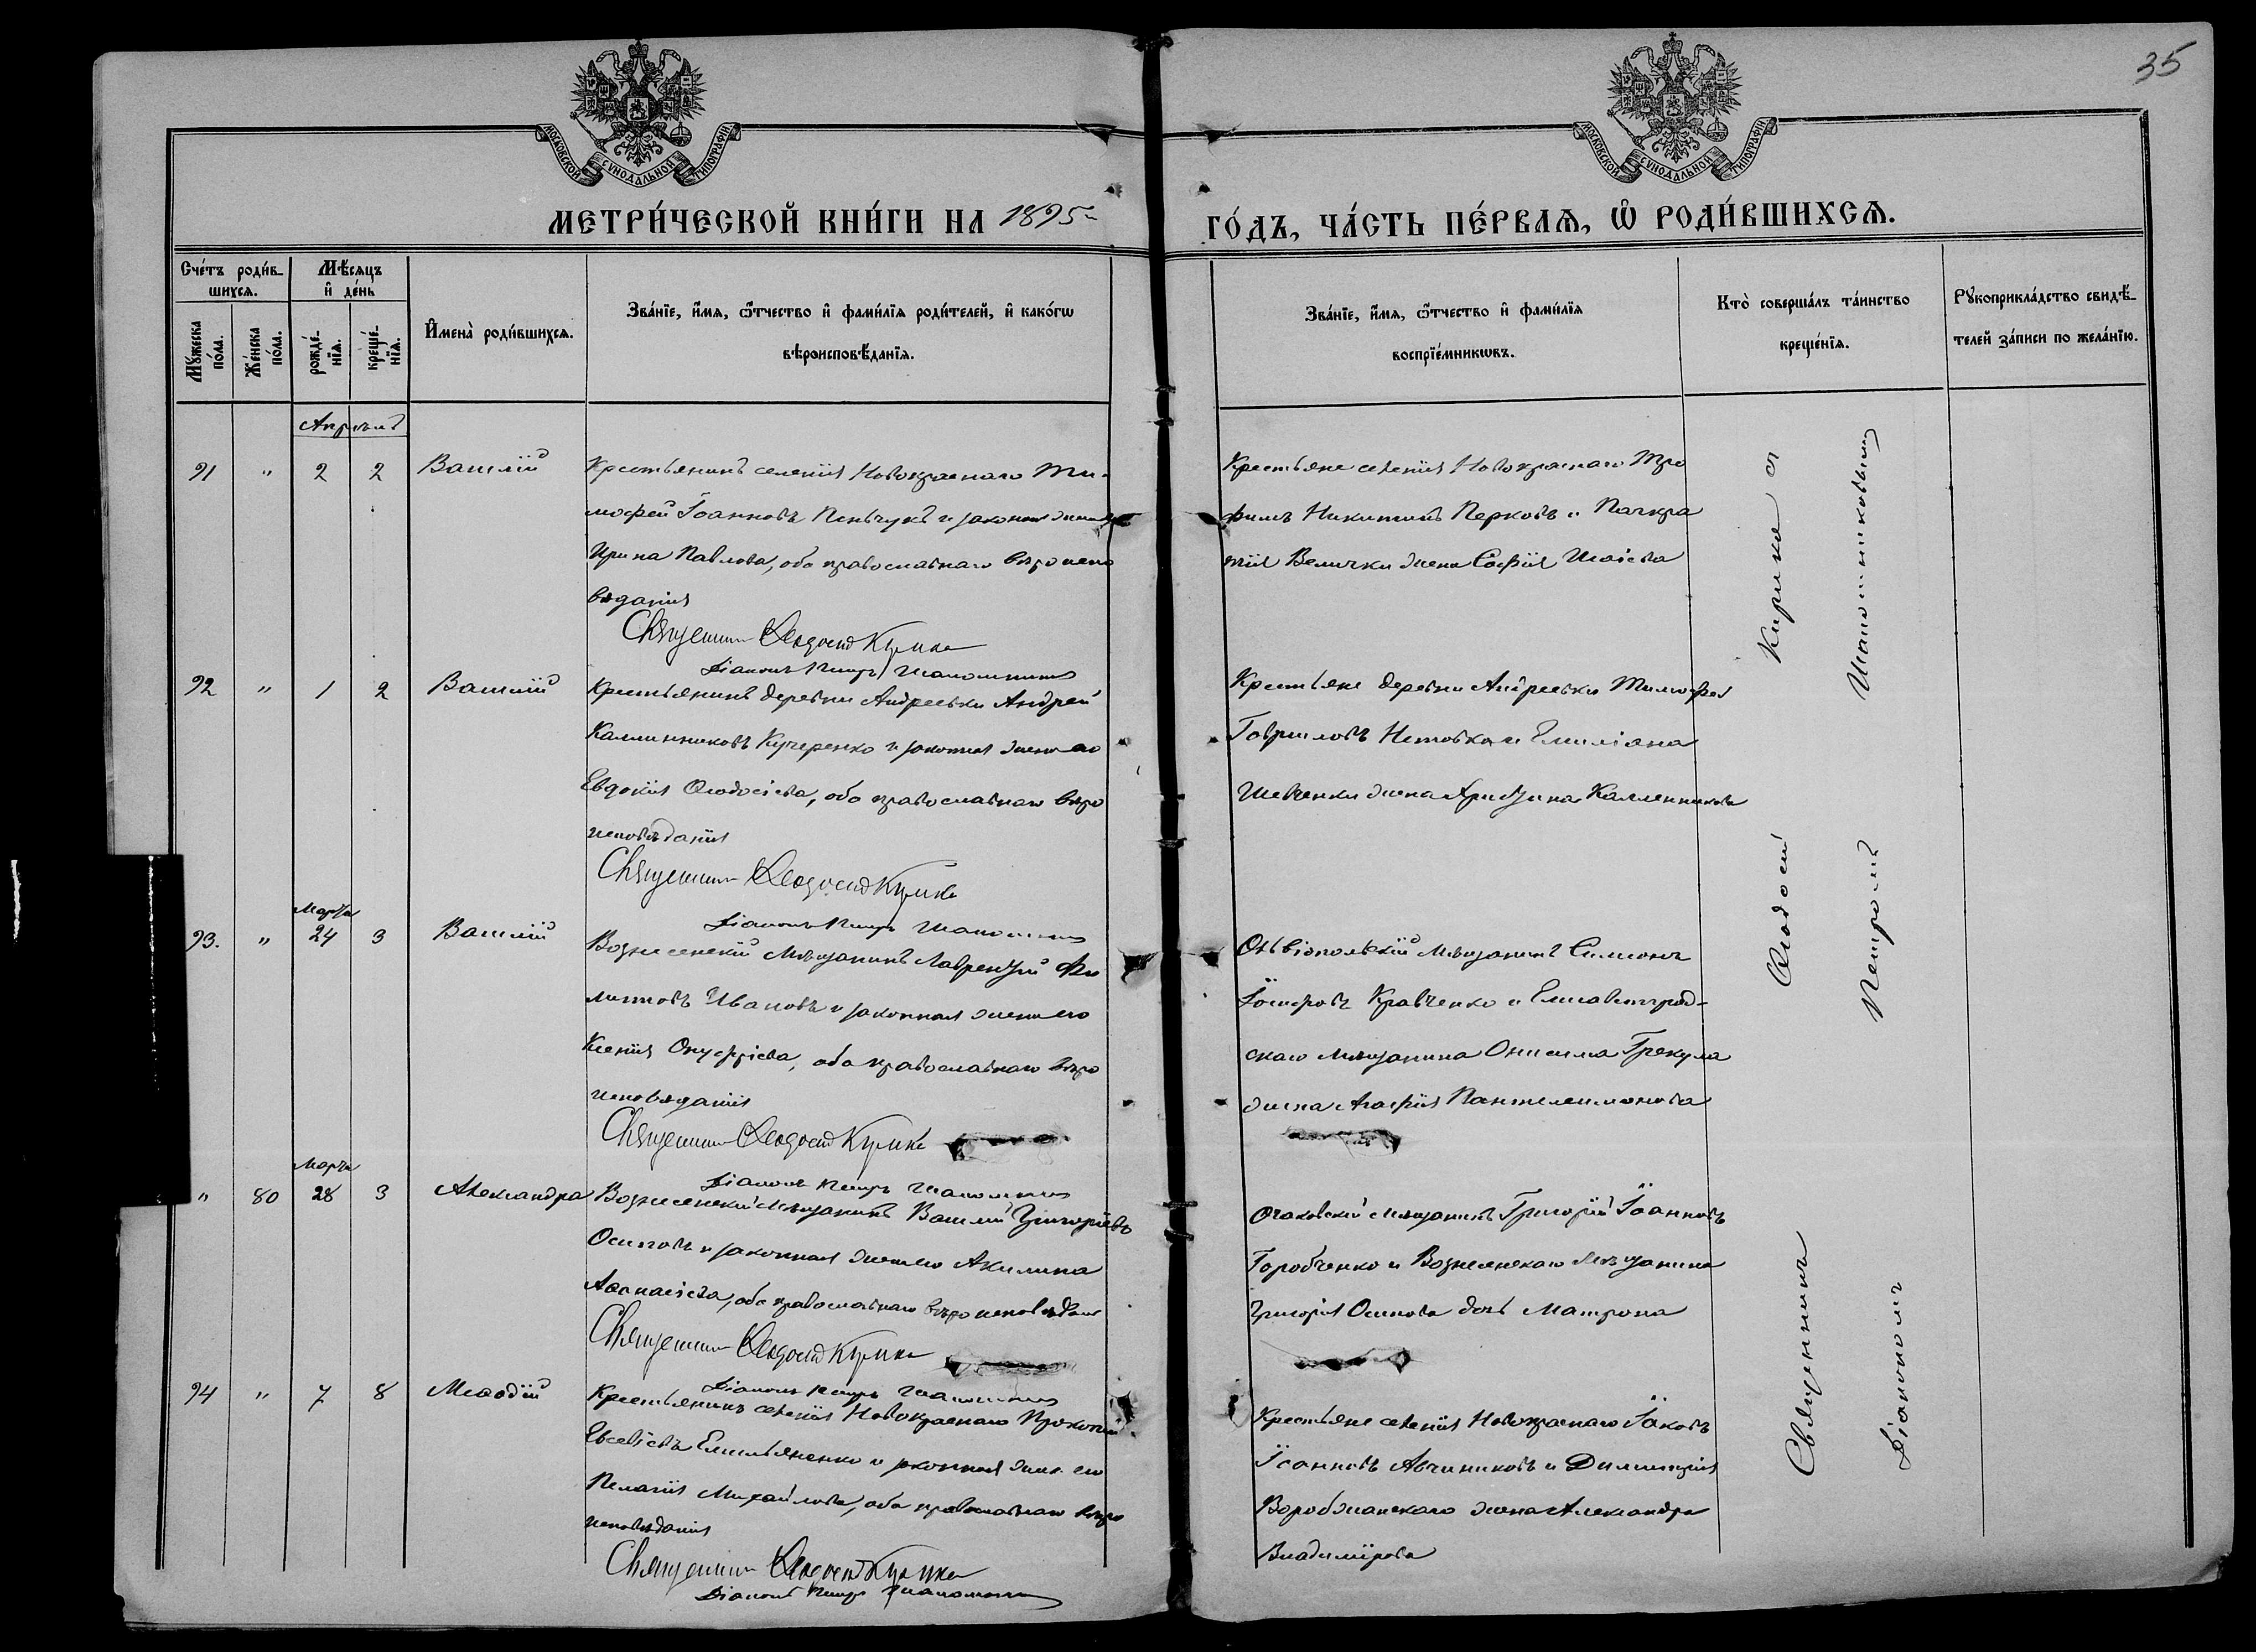 35
МОСКОВСКОЙ СѴНОДАЛЬНОЙ ТИПОГРАФІИ.
МОСКОВСКОЙ СѴНОДАЛЬНОЙ ТИПОГРАФІИ.
МЕТРИ́ЧЕСКОЙ КНИ́ГИ НА 1895
ГО́ДЪ, ЧА́СТЬ ПЕ́РВАѦ, Ѡ҆ РОДИ́ВШИХСѦ.
Сче́тъ роди́в-
шихсѧ.
Мѣ́сѧцъ
и҆ де́нь
Мꙋ́жеска
по́ла.
Же́нска
по́ла.
рожде́-
нїѧ.
креще́-
нїѧ.
И҆мена̀ роди́вшихсѧ.
Зва́нїе, и҆́мѧ, ѻ҆́тчество и҆ фами́лїѧ роди́телей, и҆ како́гѡ
вѣроисповѣ́данїѧ.
Зва́нїе, и҆́мѧ, ѻ҆́тчество и҆ фами́лїѧ
воспрїе́мникѡвъ.
Кто̀ соверша́лъ та́инство
креще́нїѧ.
Рꙋкоприкла́дство свидѣ́-
телей за́писи по жела́нїю.
Апрѣль
91 " 2 2 Василій
Крестьянинъ селенія Новокраснаго Ти-
мофей Іоанновъ Пеньчукъ и законная жена его
Ирина Павлова, оба православнаго вѣроиспо
вѣданія
Священникъ Ѳеодосій Кирика
Діаконъ Петръ Шапошников
Крестьяне селенія Новокраснаго Тро
фимъ Никитинъ Перковъ и Панкра
тія Велички жена Софія Исаіева
92 " 1 2 Василій
Крестьянинъ деревни Андреевки Андрей
Каллинниковъ Кучеренко и законная жена его
Евдокія Ѳеодосіева, оба православнаго вѣро
исповѣданія
Священникъ Ѳеодосій Кирика
Діаконъ Петръ Шапошников
Крестьяне деревни Андреевки Тимофей
Гавриловъ и Емиліана
Шевченки жена Каллинникова
Марта
93. " 24 3 Василій
Вознесенскій мѣщанинъ Лаврентій Фи
липповъ Ивановъ и законная жена его
Ксенія Онуфріева, оба православнаго вѣро
исповѣданія
Священникъ Ѳеодосій Кирика
Діаконъ Петръ Шапошников
Ольвіопольскій мѣщанинъ Симеонъ
Іосифовъ Кравченко и Елисаветград-
скаго мѣщанина Онисима Грекула
жена Агафія Пантелеимонова
Марта
" 80 28 3 Александра
Вознесенскій мѣщанинъ Василій Григоріевъ
Осиповъ и законная жена его Акилина
Аѳанасіева, оба православнаго вѣроисповѣданія
Священникъ Ѳеодосій Кирика
Діаконъ Петръ Шапошников
Очаковскій мѣщанинъ Григорій Іоанновъ
Горобченко и Вознесенскаго мѣщанина
Григорія Осипова дочь Матрона
94 " 7 8 Меѳодій
Крестьянинъ селенія Новокраснаго Прокопій
Евсевіевъ Емельяненко и законная жена его
Пелагія Михайлова, оба православнаго вѣро
исповѣданія
Священникъ Ѳеодосій Кирика
Діаконъ Петръ Шапошников
Крестьяне селенія Новокраснаго Іаковъ
Іоанновъ Авчиниковъ и Димитрія
жена Александра
Владимірова
Священникъ Ѳеодосій Кирика съ
Діакономъ Петромъ Шапошниковымъ